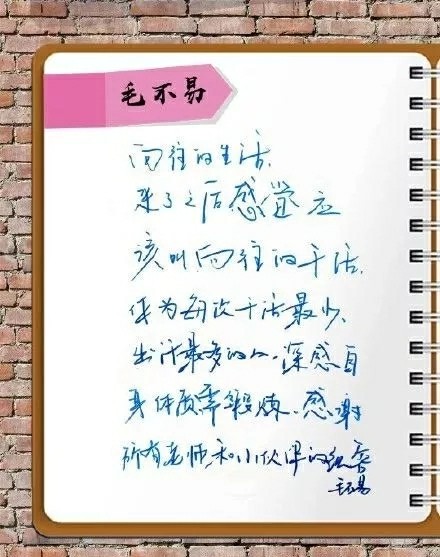 毛不易
向往的生活,
来了之后感觉应
该叫向往的干活,
作为每次干活最少、
出汗最多的人,深感自
身体质需锻炼、感谢
所有老师和小伙伴的包容
毛不易